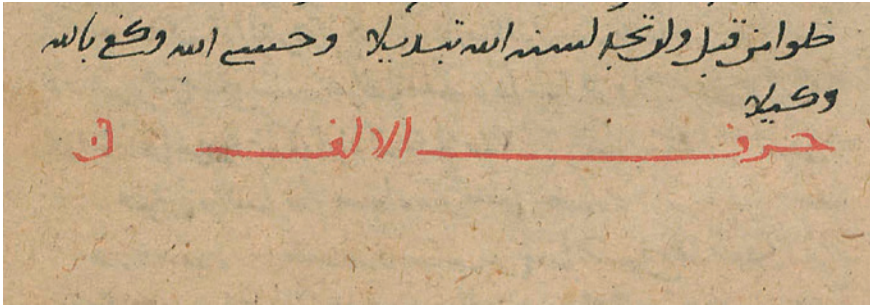 خلوا من قبل ولن تجد لسنه الله تبديلا وحسبي الله وكفى بالله
وكيلا
حرف الالف